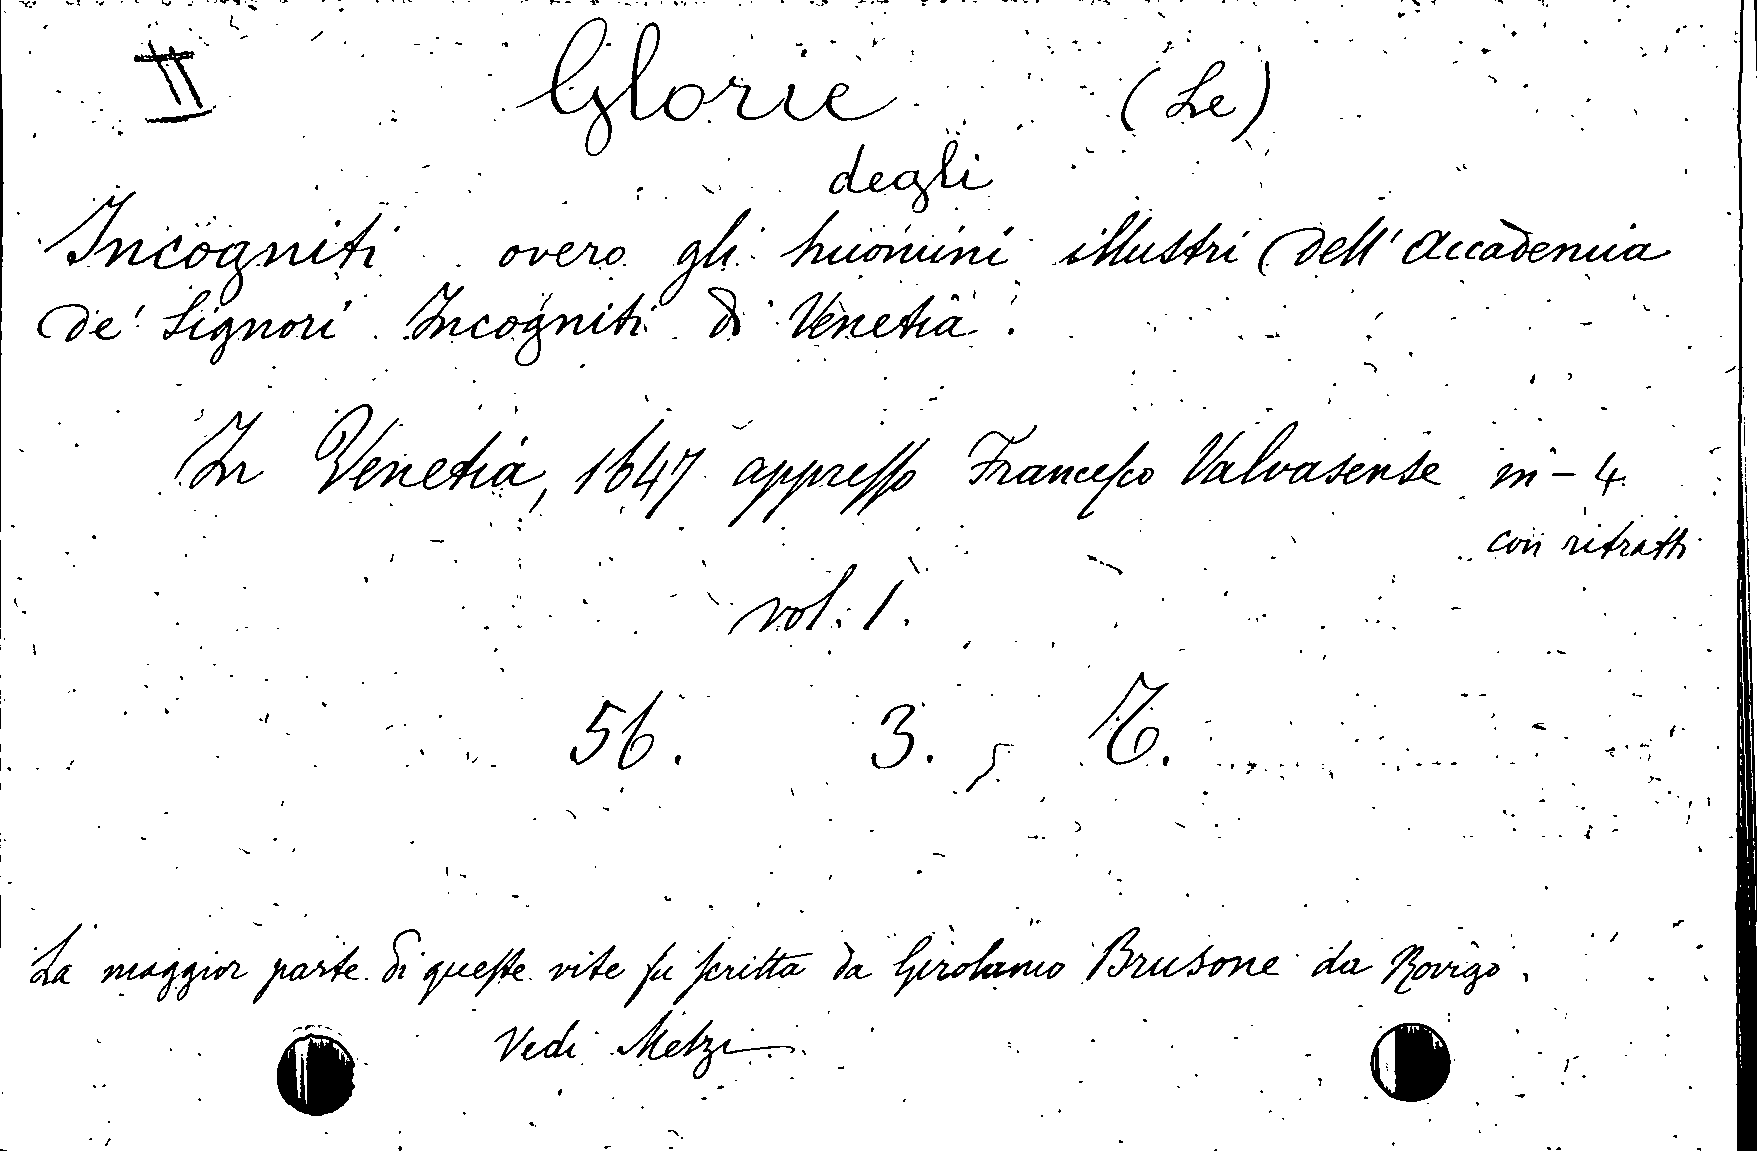 II Glorie (Le)
degli
Incogniti overo gli huomini illustri dell' Accademia
de' Signori Incogniti di Venetia.
In Venetia, 1647 appresso Francesco Valvasense in-4
con ritratti
vol. 1.
56. 3. 7.
La maggior parte di queste vite fu scritta da Girolamo Brusone da Rovigo.
Vedi Melzi